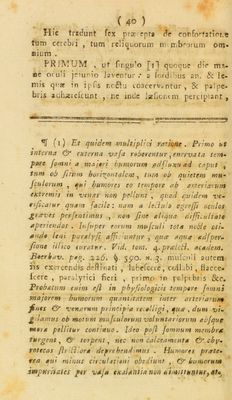 ( 40 )
Hic tradunt sex præcepta de confortatione
tum cerebri , tum reliquorum membrorum om-
nium .
PRIMUM , ut singulo [1] quoque die ma-
ne oculi jejunio laventur : a sordibus an. & le-
mis quæ in ipsis noctu coacervantur , & palpe-
bris adhærescunt , ne inde læsionem percipiant ,
¶ (1) Et quidem multiplici ratione . Primo ut
interna & externa vasa roborentur, enervata tem-
pore somni a majori humorum adfluxu ad caput ,
tum ob situm horizontalem, tum ob quietem mu-
sculorum , qui humores eo tempore ab arteriarum
extremis in venas non pellunt , quod quidem ve-
rificatur quam facile: nam a lectulo egressi oculos
graves persentimus , non sine aliqua difficultate
aperiendos . Insuper eorum musculi tota nocte oti-
ando leni paralysi afficiuntur , quæ aquæ adsper-
sione illico curatur. Vid. tom. 4. prælect. academ.
Boerhav. pag. 226. §. 590. n. 3. musculi autem
iis exercendis destinati , labescere, collabi, flacce-
scere , paralytici fieri , primo in palpebris &c.
Probatum enim est in physiologicis tempore somni
majorem humorum quantitatem inter arteriarum
fines & venarum principia recolligi , quæ , dum vi-
gilamus ob motum musculorum voluntariorum absque
mora pellitur continuo . Ideo post somnum membra
turgent, & torpent , nec non calceamenta & chy-
rotecas strictiora deprehendimus . Humores præte-
rea qui minus circulationi obediunt , & humorum
impuritates per vasa exalantia non dimittuntur, at-